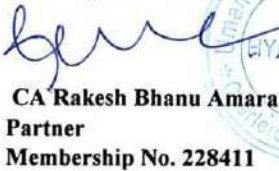 CA Rakesh Bhanu Amara
Partner
Membership No. 228411